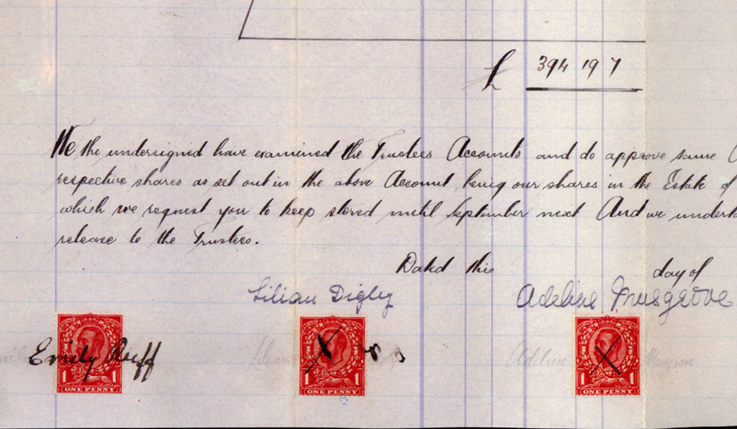 £ 394 19 7
We the undersigned have examined the Trustees Accounts and do approve same
respective shares as set out in the above Account, being our shares in the Estate of
which we request you to keep stored until September next And we
release to the Trustees.
Dated this day of
Lilian Digby Adeline Musgrove
Emily Ruff
1 1 1 1 1 1
ONE PENNY ONE PENNY ONE PENNY